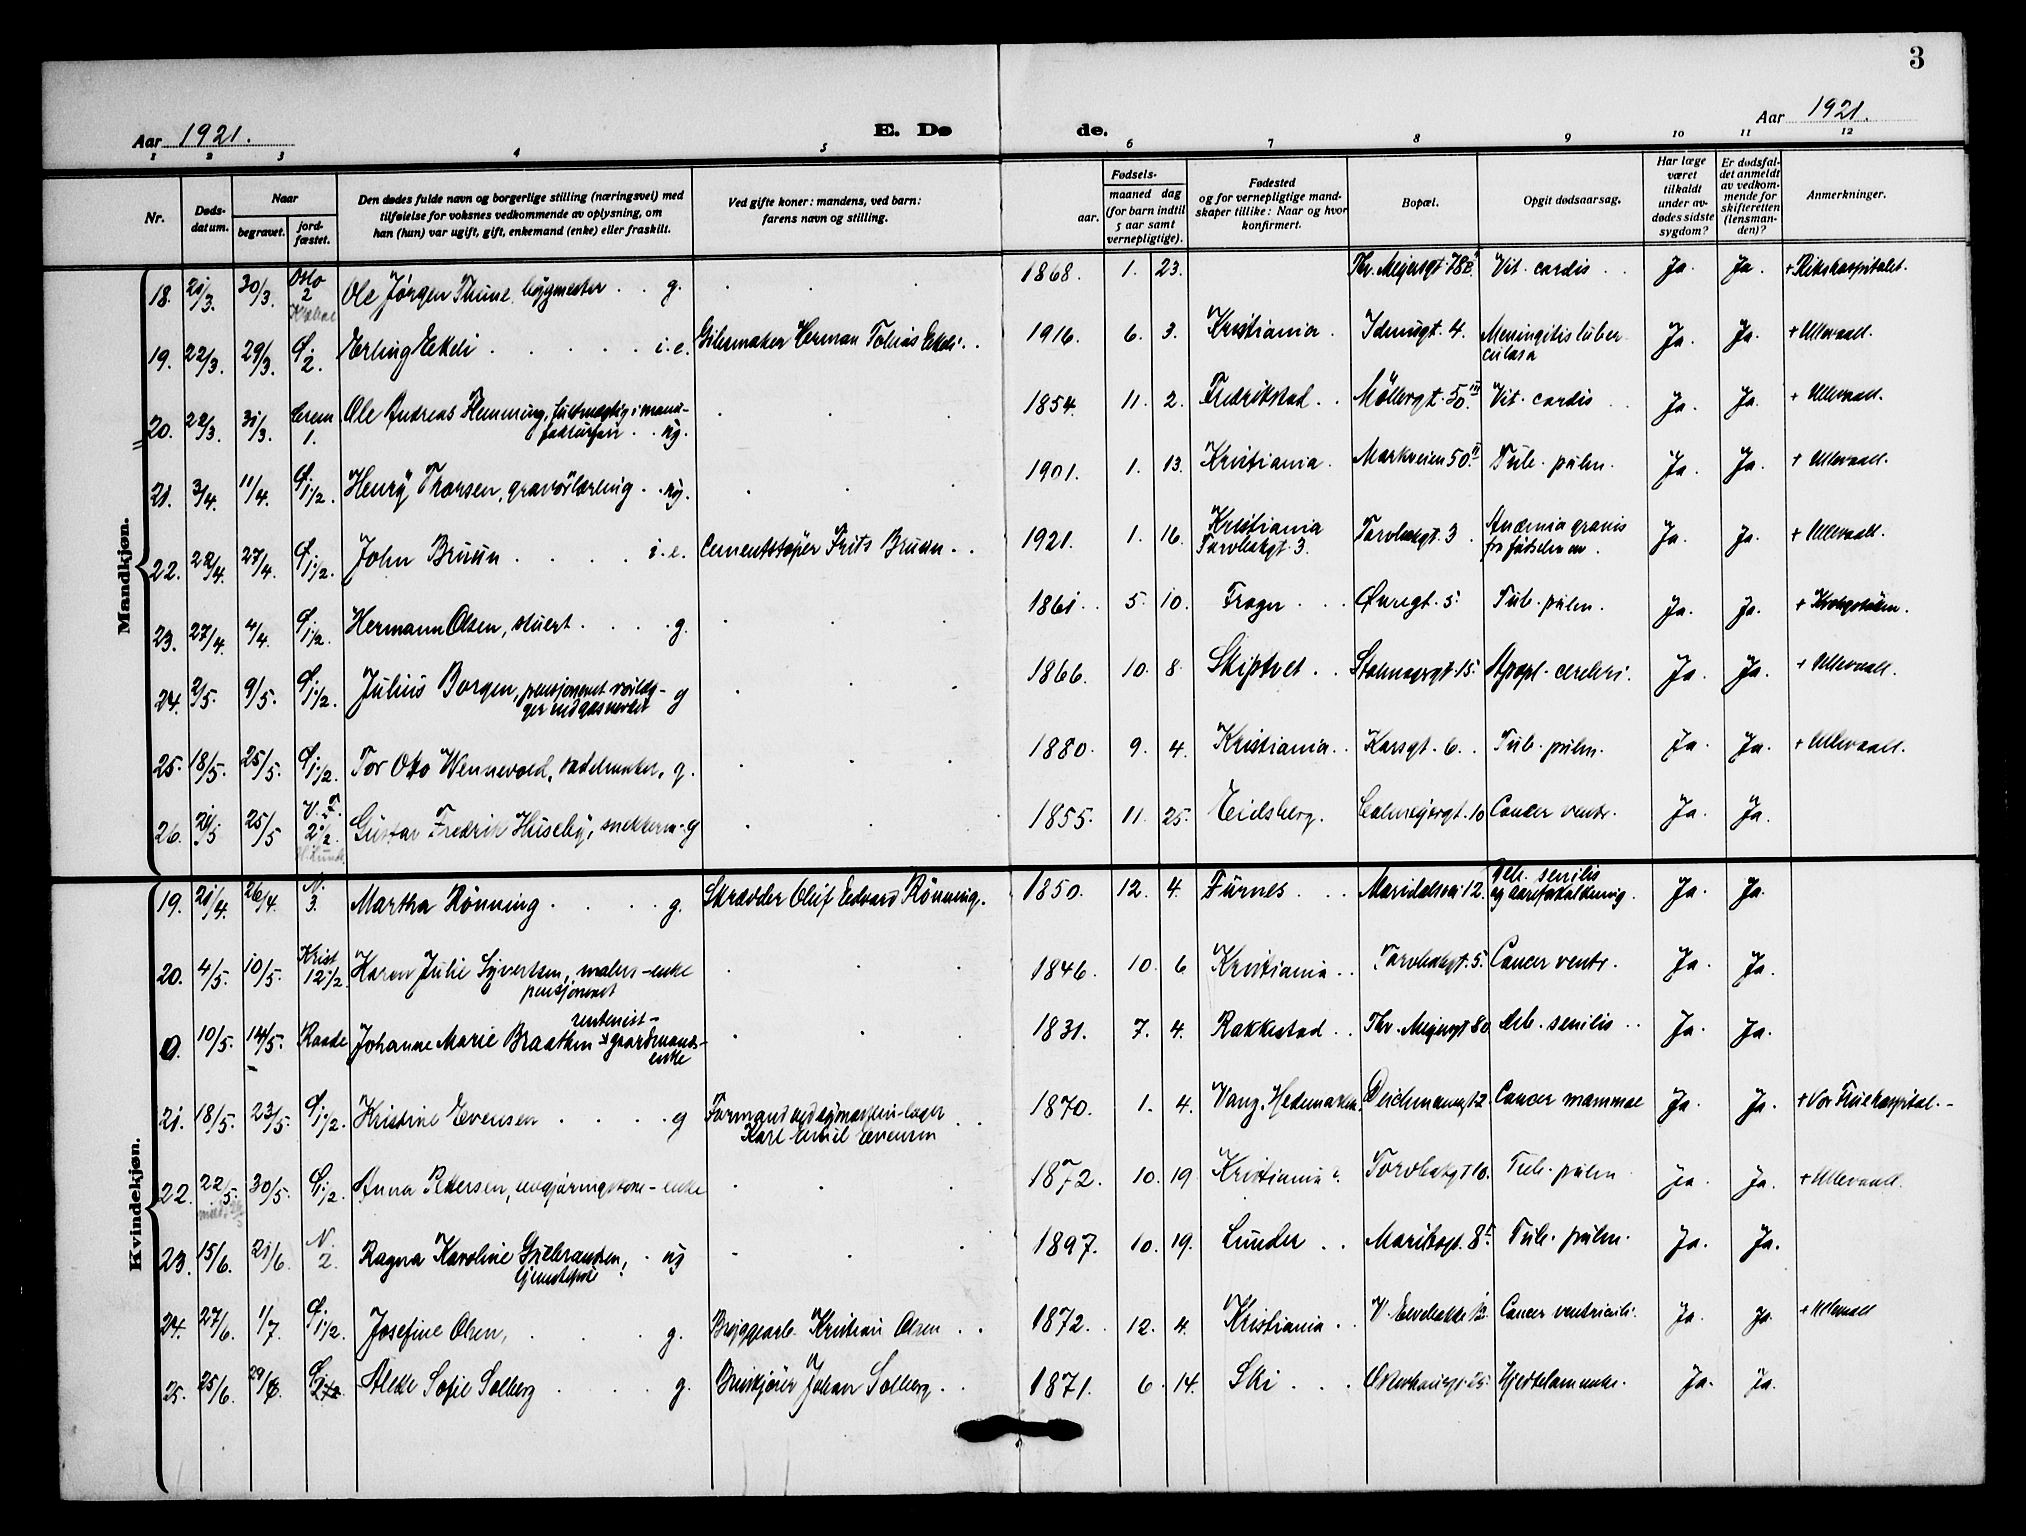 3
Aar 1921.
E. Døde.
Aar 1921.
1 2 3 4 5 6 7 8 9 10 11 12
Nr.
Døds-datum.
Naar
begravet.
jord-fæstet.
Den dødes fulde navn og borgerlige stilling (næringsvei) med
tilføielse for voksnes vedkommende av oplysning, om
han (hun) var ugift, gift, enkemand (enke) eller fraskilt.
Ved gifte koner: mandens, ved barn:
farens navn og stilling.
Fødsels-
aar.
maaned dag
(for barn indtil
5 aar samt
vernepligtige).
Fødested
og for vernepligtige mand-
skaper tillike: Naar og hvor
konfirmert.
Bopæl.
Opgit dødsaarsag.
Har læge
været
tilkaldt
under av-
dødes sidste
sygdom?
Er dødsfal-
det anmeldt
av vedkom-
mende for
skifteretten
(lensman-
den)?
Anmerkninger.
Mandkjøn.
18. 21/3. 30/3. Oslo 2 Ole Jørgen Thune, bygmester . . g. 1868. 1. 23. Thv. Meyersgt. 78 Vit. cordis Ja. Ja. + Rikshospitalet.
19. 22/3. 29/3. 2. Erling Eekdi . . . . i.e. Herman Tobias Eekdi . . 1916. 6. 3. Kristiania. 4. Meningitis tuberculosa Ja. Ja. + Ullevaall.
20. 22/3. 31/3. Crem 1. Ole Andreas Flemming, fuldmægtig i . . ug. 1854. 11. 2. Fredrikstad . . Møllergt. 50 III Vit. cordis . . Ja. Ja. + Ullevaall.
21. 3/4. 11/4. 1/2. Henry Thorsen, gravørlærling . . ug. 1901. 1. 13. Kristiania. Markveien 50 II Tub. pulm. Ja. Ja. + Ullevaall.
22. 22/4. 27/4. 1/2. John Bruun . . . . i.e. Cementstøper Frits Bruun . . 1921. 1. 16. Kristiania Torvbakgt. 3. Torvbakgt. 3 . Anæmia gravis fra fødselen av . Ja. Ja. + Ullevaall.
23. 27/4. 4/4. 1/2. Hermann Olsen, stuert . . . . g. 1861 . . 5. 10. Frogn . . . Øvregt. 5. Tub. pulm. Ja. Ja. + Krohgstøtten.
24. 2/5. 9/5. 1/2. Julius Borgen, pensjoneret ved gasverket - g 1866. 10. 8. Skiptvet . . 15. Apopl. cerebri. Ja. Ja. + Ullevaall.
25. 18/5. 25/5. 1/2. Tor Oko Wennevold, sadelmaker, g. 1880. 9. 4. Kristiania. . Korsgt. 6 . . Tub. pulm. Ja. Ja. + Ullevaall.
26. 21/5 25/5 V. F. 2 1/2. Gustav Fredrik Huseby, snekkerm. g 1855. 11. 25. Eidsberg. Calmeyergt. 10 Cancer ventr. Ja. Ja.
Kvindekjøn.
19. 21/4. 26/4. N. 3. Martha Rønning . . . . g. Skrædder Oluf Edvard Rønning. 1850. 12. 4. Furnes . . . 12. senilis og aareforkalkning. Ja. Ja.
20. 4/5. 10/5. Krist 12 1/2. Karen Julie Syvertsen, malers-enke pensjoneret 1846. 10. 6 Kristiania . . Torvbakgt. 5. Cancer ventr. Ja. Ja.
0. 10/5. 14/5. Raade Johanne Marie Braathen rentenist- gaardmands-enke 1831. 7. 4. Rakkestad . . Thv. Meyersgt 80 senilis . . Ja. Ja.
21. 18/5. 23/5. 1/2. Kristine Evensen . . . . g Formand Karl Emil Evensen . . 1870. 1. 4. Vang. Hedemarken. Deichmansgt 2. Cancer mammae Ja. Ja. + Vor Frue hospital. -
22. 22/5. 30/5. 1/2. Anna Pedersen, rengjøringskone - enke 1872. 10. 19 Kristiania . Torvbakgt 10. Tub. pulm Ja. Ja. + Ullevaall.
23. 15/6. 21/6. N. 2. Ragna Karoline Gulbrandsen, tjenestepike . ug 1897. 10. 19. Lunder . . Maribogt. 8 Tub. pulm. Ja. Ja.
24. 27/6. 1/7. 1/2. Josefine Olsen, . . . g. Bryggearb. Kristian Olsen . . 1872. 12. 4. Kristiania . . Cancer ventriculi. Ja. Ja. + Ullevaall
25. 25/6. 29/6. Sofie Solberg . . . . g. Johan Solberg . . 1871. 6. 14. Ski . . . 25. Hjertelammelse. Ja. Ja.